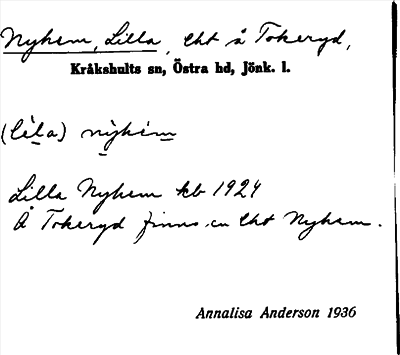 Nyhem, Lilla, lht å Tokeryd,
Kråkshults sn, Östra hd, Jönk. l.
(lìla) nỳhèm
Lilla Nyhem kb 1924
Å Tokeryd finns en lht Nyhem.
Annalisa Anderson 1936